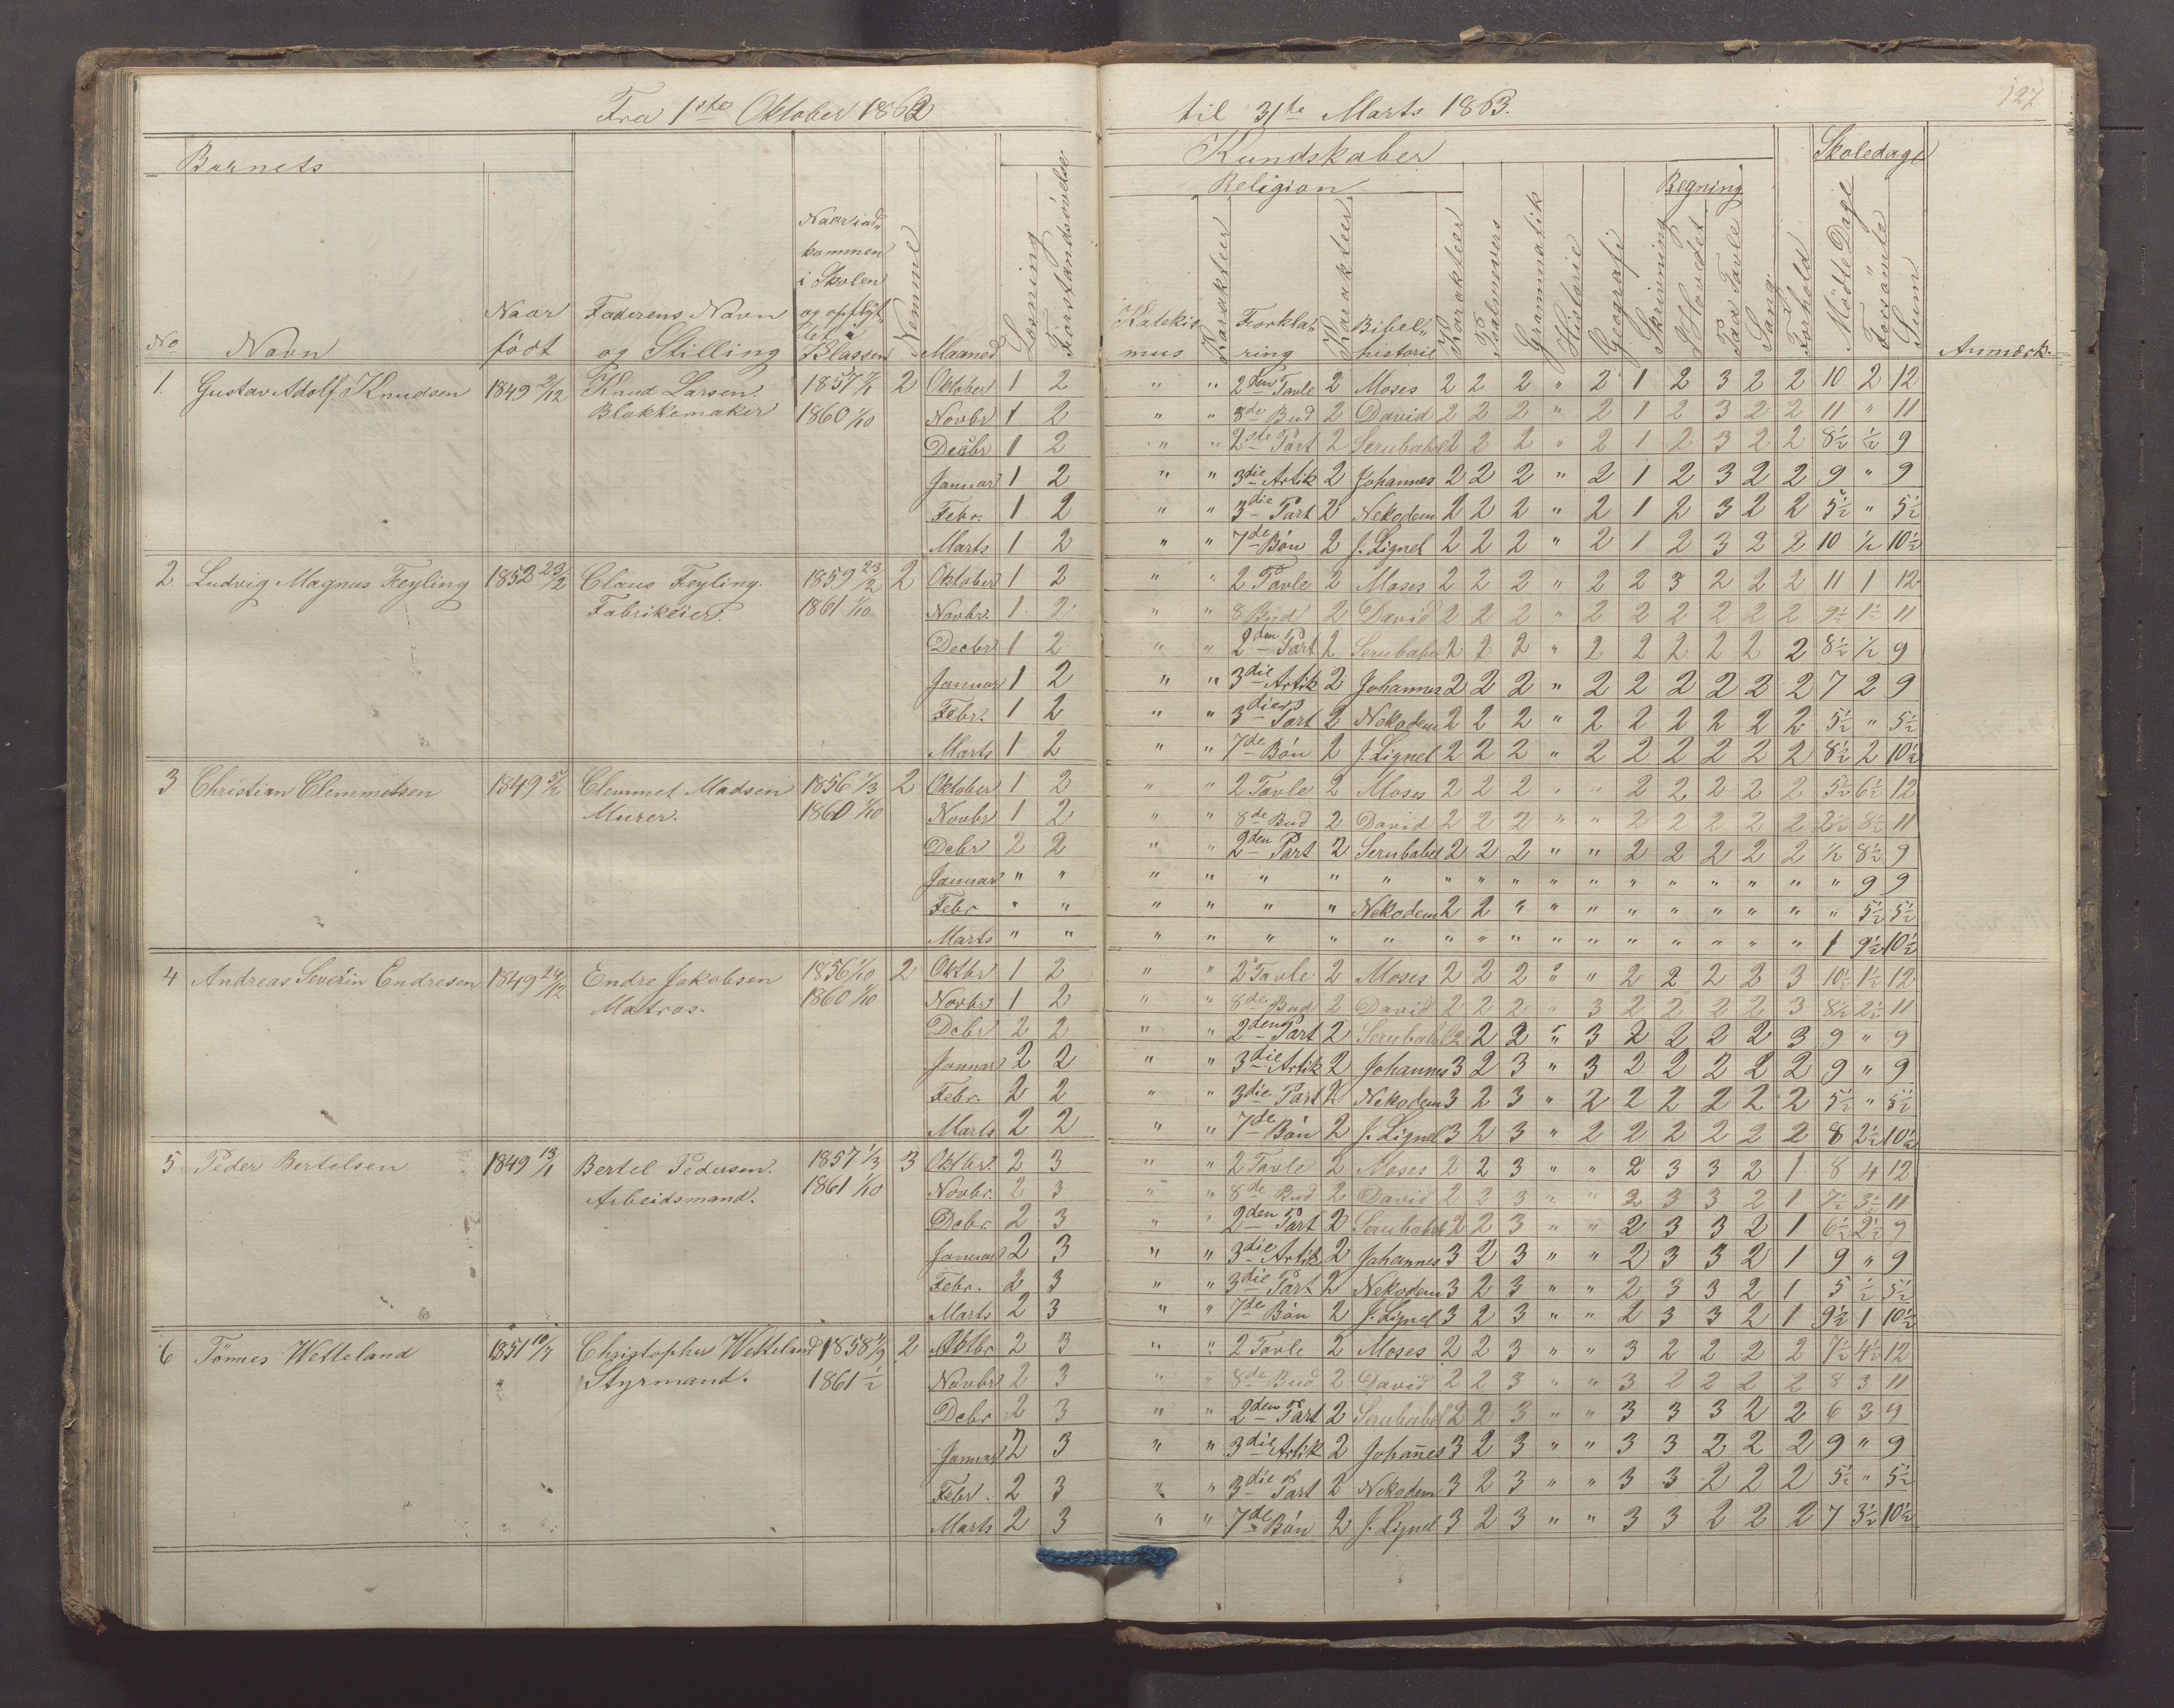 Fra 1ste Oktober 1862 til 31te Marts 1863. 127
Barnets Kundskaber Skoledage
Religion Regning
No Navn Naar født Faderens Navn og Stilling Naar indkommen i Skolen og opflyttet i Klassen Nemme Maaned Læsning Forstandsøvelse Katekismus Karakteer Forklaring Karakteer Bibelhistorie Karakteer Psalmevers Grammatik Historie Geografi Skrivning I Hovedet Paa Tavle Sang Forhold Mødte Dage Forsømte Sum Anmærk.
1. Gustav Adolf Knudsen 1849 2/12 Knud Larsen. 1857 7/1 2 Oktober 1 2 " " 2den Tavle 2 Moses 2 2 2 " 2 1 2 3 2 2 10 2 12
Blokkemaker 1860 1/10 Novbr 1 2 " " 8de Bud 2 David 2 2 2 " 2 1 2 3 2 2 11 " 11
Decbr 1 2 " " 2de Part 2 Serubabel 2 2 2 " 2 1 2 3 2 2 8½ ½ 9
Januar 1 2 " " 3die Artik 2 Johannes 2 2 2 " 2 1 2 3 2 2 9 " 9
Febr. 1 2 " " 3die Part 2 Nekodem 2 2 2 " 2 1 2 3 2 2 5½ " 5½
Marts 1 2 " " 7de Bøn 2 J. Lignel 2 2 2 " 2 1 2 3 2 2 10 ½ 10½
2 Ludvig Magnus Feyling 1852 23/2 Claus Feyling. 1859 23/2 2 Oktober 1 2 " " 2 Tavle 2 Moses 2 2 2 " 2 2 3 2 2 2 11 1 12
Fabrikeier. 1861 1/10 Novbr. 1 2 " " 8 Bud 2 David 2 2 2 " 2 2 2 2 2 2 9½ 1½ 11
Decbr 1 2 " " 2den Part 2 Serubabel 2 2 2 " 2 2 2 2 2 2 8½ ½ 9
Januar 1 2 " " 3die Artik 2 Johannes 2 2 2 " 2 2 2 2 2 2 7 2 9
Febr. 1 2 " " 3die Part 2 Nekodem 2 2 2 " 2 2 2 2 2 2 5½ " 5½
Marts 1 2 " " 7de Bøn 2 J. Lignel 2 2 2 " 2 2 2 2 2 2 8½ 2 10½
3 Christian Clemmetsen 1849 5/2 Clemmet Madsen 1856 1/3 2 Oktober 1 2 " " 2 Tavle 2 Moses 2 2 2 " " 2 2 2 2 2 5½ 6½ 12
Murer. 1860 1/10 Novbr 1 2 " " 8de Bud 2 David 2 2 2 " " 2 2 2 2 2 2½ 8½ 11
Dcbr 2 2 " " 2den Part 2 Serubabel 2 2 2 " " 2 2 2 2 2 ½ 8½ 9
Januar " " " " " " " " " " " " " " " " " " 9 9
Febr " " " " " " Nekodem 2 2 " " " " " " " " " 5½ 5½
Marts " " " " " " " " " " " " " " " " " 1 9½ 10½
4 Andreas Severin Endresen 1849 24/12 Endre Jakobsen 1856 1/10 2 Oktbr 1 2 " " 2 Tavle 2 Moses 2 2 2 " " 2 2 2 2 3 10½ 1½ 12
Matros. 1860 1/10 Novbr 1 2 " " 8de Bud 2 David 2 2 2 " 3 2 2 2 2 3 8½ 2½ 11
Dcbr 2 2 " " 2den Part 2 Serubabel 2 2 2 " 3 2 2 2 2 3 9 " 9
Januar 2 2 " " 3die Artik 2 Johannes 3 2 3 " 3 2 2 2 2 2 9 " 9
Febr. 2 2 " " 3die Part 2 Nekodem 3 2 3 " 2 2 2 2 2 2 5½ " 5½
Marts 2 2 " " 7de Bøn 2 J. Lignel 3 2 3 " 2 2 2 2 2 2 8 2½ 10½
5 Peder Bertelsen 1849 13/1 Bertel Pedersen. 1857 1/3 3 Oktbr. 2 3 " " 2 Tavle 2 Moses 2 2 3 " " 2 3 3 2 1 8 4 12
Arbeidsmand. 1861 1/10 Novbr. 2 3 " " 8de Bud 2 David 2 2 3 " " 2 3 3 2 1 7½ 3½ 11
Dcbr. 2 3 " " 2den Part 2 Serubabel 2 2 3 " " 2 3 3 2 1 6½ 2½ 9
Januar 2 3 " " 3die Artik 2 Johannes 3 2 3 " " 2 3 3 2 1 9 " 9
Febr. 2 3 " " 3die Part 2 Nekodem 3 2 3 " " 2 3 3 2 1 5 ½ 5½
Marts 2 3 " " 7de Bøn 2 J. Lignel 3 2 3 " " 2 3 3 2 1 9½ 1 10½
6 Tønnes Wetteland 1851 10/7 Christopher Wetteland 1858 1/9 2 Oktbr 2 3 " " 2 Tavle 2 Moses 2 2 3 " " 3 2 2 2 2 7½ 4½ 12
Styrmand. 1861 1/2 Novbr 2 3 " " 8de Bud 2 David 2 2 3 " " 3 2 2 2 2 8 3 11
Dcbr 2 3 " " 2den Part 2 Serubabel 2 2 3 " " 3 3 3 2 2 6 3 9
Januar 2 3 " " 3die Artik 2 Johañes 3 2 3 " " 3 3 2 2 2 9 " 9
Febr. 2 3 " " 3die Part 2 Nekodem 3 2 3 " " 3 3 2 2 2 5½ " 5½
Marts 2 3 " " 7de Bøn 2 J. Lignel 3 2 3 " " 3 3 2 2 2 7 3½ 10½